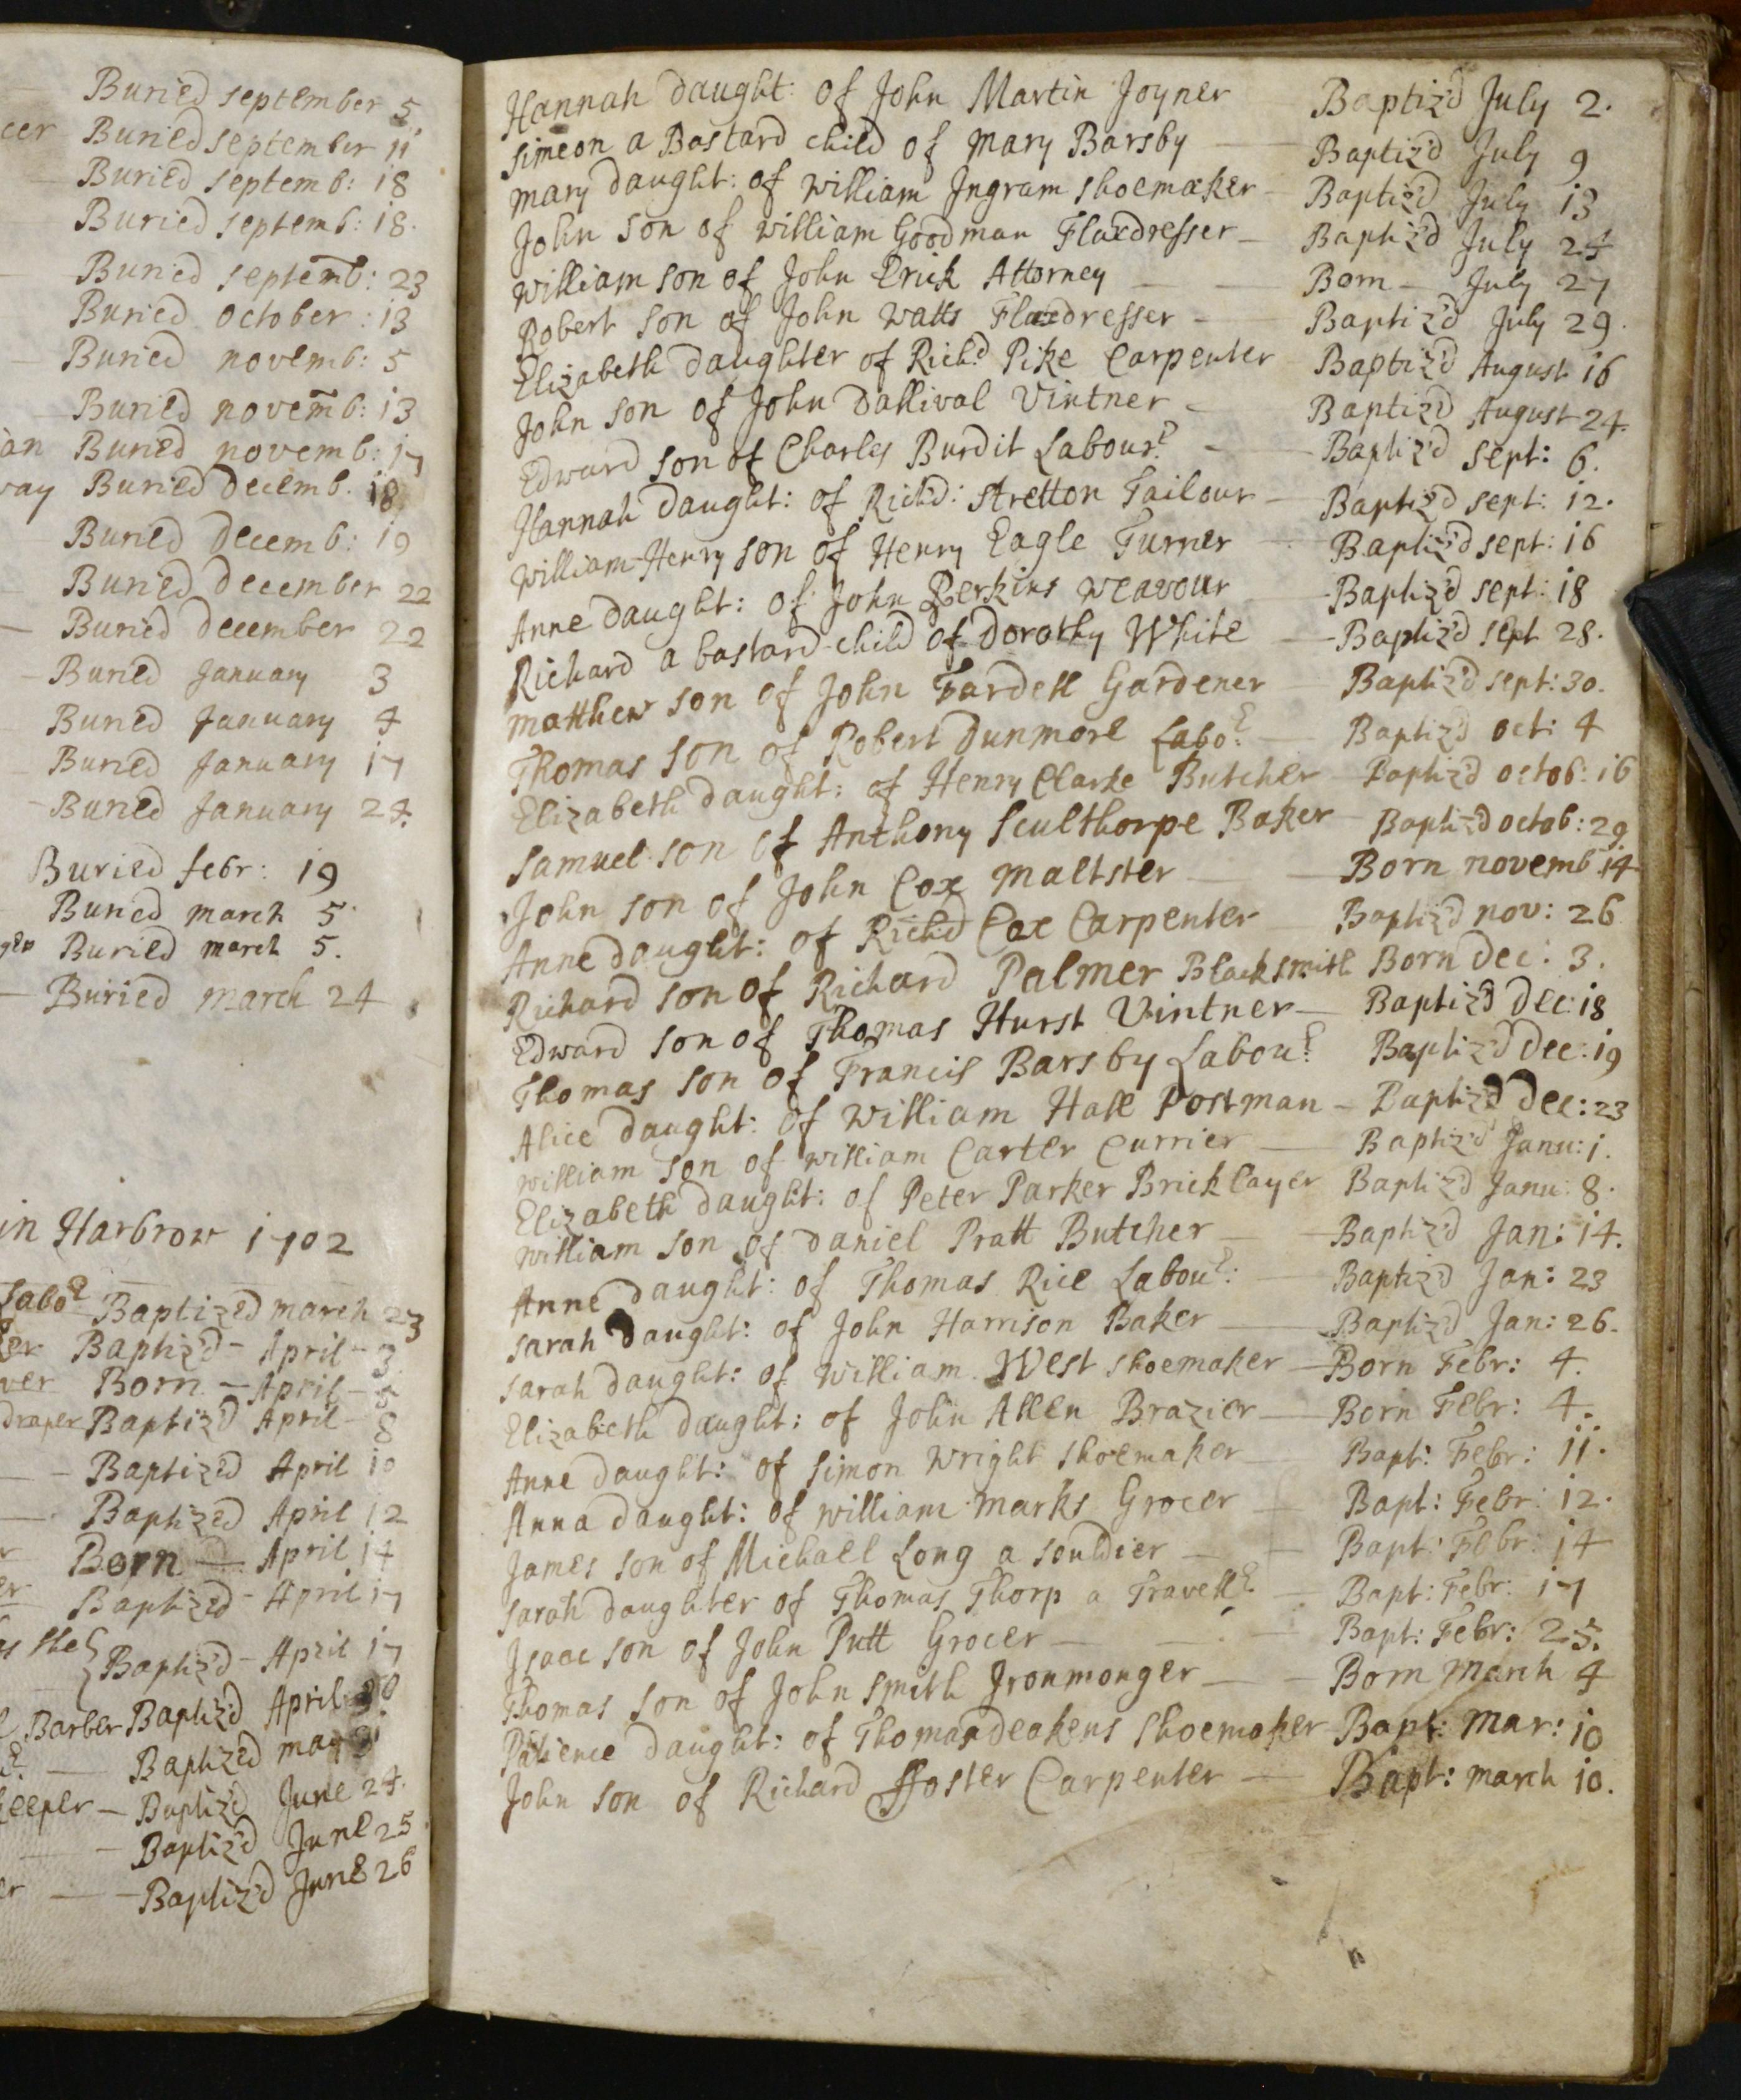 Buried september 5
cer Buried september 11
Buried septemb: 18
Buried septemb: 18.
Buried septemb: 23
Buried October: 13
Buried novemb: 5
Buried novemb: 13
an Buried novemb: 17
ray Buried decemb. 18
Buried Decemb: 19
Buried December 22
Buried December 22
Buried January 3
Buried January 4
Buried January 17
Buried January 24.
Buried febr: 19
Buried march 5
Buried march 5.
Buried march 24
in Harbrow 1702
Labor Baptized march 23
ker Baptiz'd April 3
ver Born April 5
draper Baptiz'd April 8
Baptized April 10
Baptized April 12
Born April 14
er Baptized April 17
Baptiz'd April 17
Barber Baptiz'd April
Baptized may
keeper Baptiz'd June 24.
Baptiz'd June 25
er Baptiz'd June 26
Hannah Daught: of John Martin Joyner Baptiz'd July 2.
Simeon a Bastard child of Mary Barsby Baptiz'd July 9
Mary Daught: of William Ingram shoemaker Baptiz'd July 13
John Son of William Goodman Flaxdresser Baptiz'd July 24
William son of John Erick Attorney Born July 27
Robert Son of John Watts Flaxdresser Baptiz'd July 29.
Elizabeth Daughter of Rich:d Pike Carpenter Baptiz'd August 16
John son of John Dallival Vintner Baptiz'd August 24.
Edward son of Charles Burdit Labour:r Baptiz'd Sept: 6.
Hannah Daught: of Rich'd: Stretton Tailour Baptiz'd sept: 12.
William-Henry son of Henry Eagle Turner Baptiz'd sept: 16
Anne Daught: of John Perkins weavour Baptiz'd sept: 18
Richard a bastard child of Dorothy White Baptiz'd sept 28.
Matthew son of John Fardell Gardener Baptiz'd sept: 30.
Thomas son of Robert Dunmore Labo:r Baptiz'd oct: 4
Elizabeth Daught: of Henry Clarke Butcher Baptiz'd octob: 16
Samuel son of Anthony Sculthorpe Baker Baptiz'd octob: 29.
John son of John Cox maltster Born novemb 14
Anne Daught: of Rich'd Cox Carpenter Baptiz'd nov: 26
Richard son of Richard Palmer Blacksmith Born Dec: 3.
Edward son of Thomas Hurst Vintner Baptiz'd Dec: 18
Thomas son of Francis Barsby Labou:r Baptiz'd Dec: 19
Alice Daught: of William Hall Postman Baptiz'd Dec: 23
William Son of William Carter Currier Baptiz'd Janu: 1.
Elizabeth Daught: of Peter Parker Bricklayer Baptiz'd Janu: 8.
William son of Daniel Pratt Butcher Baptiz'd Jan: 14.
Anne Daught: of Thomas Rice Labou:r Baptiz'd Jan: 23
Sarah Daught: of John Harrison Baker Baptiz'd Jan: 26.
Sarah Daught: of William West shoemaker Born Febr: 4.
Elizabeth Daught: of John Allen Brazier Born Febr: 4.
Anne Daught: of Simon Wright Shoemaker Bapt: Febr: 11.
Anna Daught: of William Marks Grocer Bapt: Febr: 12.
James son of Michael Long a Souldier Bapt: Febr: 14
Sarah daughter of Thomas Thorp a Travell:r Bapt: Febr: 17
Isaac son of John Putt Grocer Bapt: Febr: 25.
Thomas Son of John Smith Ironmonger Born March 4
Patience Daught: of Thomas Deakens Shoemaker Bapt: Mar: 10
John Son of Richard Ffoster Carpenter Bapt: march 10.